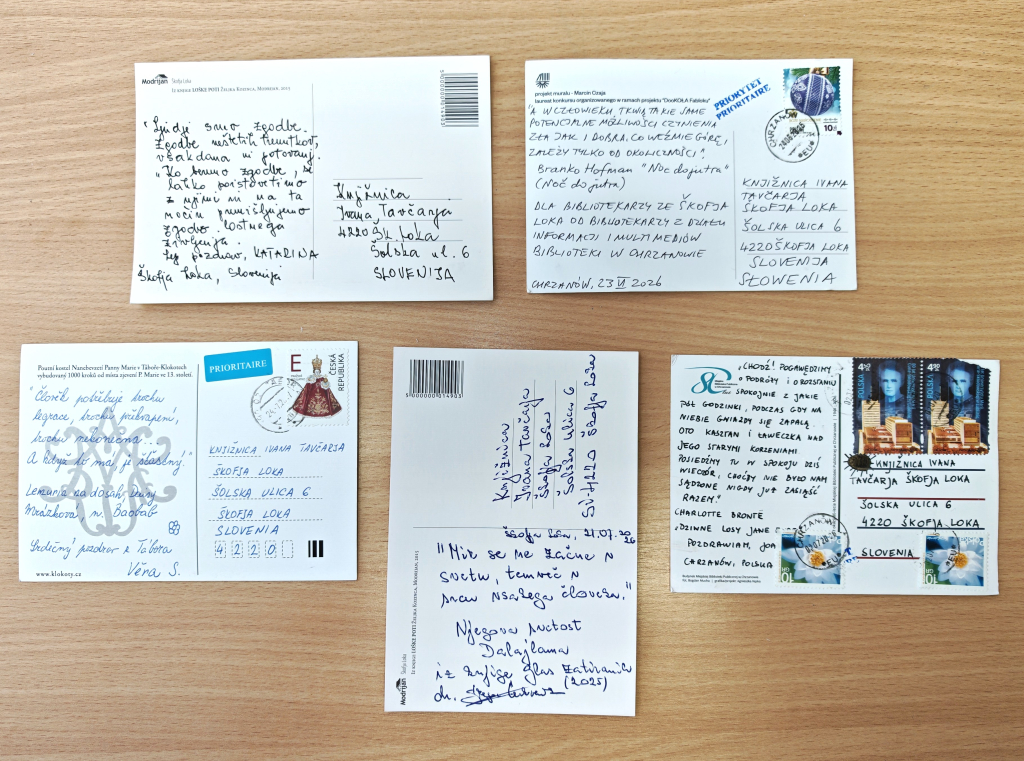 Modrijan Škofja Loka
Iz knjige LOŠKE POTI Željka Kozinca, Modrijan, 2015
"Ljudje smo zgodbe.
Zgodbe neštetih trenutkov,
vsakdana in potovanj.
"Ko beremo zgodbe, se
lahko poistovetimo
z njimi in na ta
način premišljujemo
zgodbo lastnega
življenja.
Lep pozdrav, KATARINA
Škofja Loka, Slovenija
Knjižnica
Ivana Tavčarja
4220 Šk. Loka
Šolska ul. 6
SLOVENIJA
projekt muralu - Marcin Czaja
laureat konkursu organizowanego w ramach projektu "DooKOŁA Fabloku"
PRIORYTET
PRIORITAIRE
"A W CZŁOWIEKU TKWIĄ TAKIE SAME
POTENCJALNE MOŻLIWOŚCI CZYNIENIA
ZŁA JAK I DOBRA. CO WEŹMIE GÓRĘ,
ZALEŻY TYLKO OD OKOLICZNOŚCI".
Branko Hofman "Noč do jutra"
(Noč do jutra)
DLA BIBLIOTEKARZY ZE ŠKOFJA
LOKA OD BIBLIOTEKARZY Z DZIAŁU
INFORMACJI I MULTIMEDIÓW
BIBLIOTEKI W CHRZANOWIE
CHRZANÓW, 23 VI 2026
CHRZANÓW
*EU*
10
KNJIŽNICA IVANA
TAVČARJA
ŠKOFJA LOKA
ŠOLSKA ULICA 6
4220 ŠKOFJA LOKA
SLOVENIJA
SŁOWENIA
Poutní kostel Nanebevzetí Panny Marie v Táboře-Klokotech
vybudovaný 1000 kroků od místa zjevení P. Marie ve 13. století.
PRIORITAIRE
E
ČESKÁ
REPUBLIKA
"Člověk potřebuje trochu
legrace, trochu překvapení,
trochu nekonečna...
A když to má, je šťastný."
Lemuria na dosah ruky
Mrázková, n. Baobab
Srdečný pozdrav z Tábora
Věra S.
www.klokoty.cz
KNJIŽNICA IVANA TAVČARJA
ŠKOFJA LOKA
ŠOLSKA ULICA 6
ŠKOFJA LOKA
SLOVENIA
4220
5000000014903
Knjižnica
Ivana Tavčarja
Škofja Loka
Šolska ulica 6
SI-4220 Škofja Loka
Škofja Loka, 21.07.2026
"Mir se ne začne v
svetu, temveč v
srcu vsakega človeka."
Njegova svetost
Dalajlama
iz knjige Glas zatiranih
(2025)
dr.
Modrijan Škofja Loka
Iz knjige LOŠKE POTI Željka Kozinca, Modrijan, 2015
"CHODŹ! POGAWĘDZIMY
O PODRÓŻY I O ROZSTANIU
SPOKOJNIE Z JAKIE
PÓŁ GODZINKI, PODCZAS GDY NA
NIEBIE GWIAZDY SIĘ ZAPALĄ.
OTO KASZTAN I ŁAWECZKA NAD
JEGO STARYMI KORZENIAMI.
POSIEDŹMY TU W SPOKOJU DZIŚ
WIECZÓR, CHOĆBY NIE BYŁO NAM
SĄDZONE NIGDY JUŻ ZASIĄŚĆ
RAZEM."
CHARLOTTE BRONTË
"DZIWNE LOSY JANE
POZDRAWIAM, JOA
CHRZANÓW, POLSKA
POLSKA
4,50
4,50
KNJIŽNICA IVANA
TAVČARJA ŠKOFJA LOKA
ŠOLSKA ULICA 6
4220 ŠKOFJA LOKA
SLOVENIJA
CHRZANÓW
*EU*
10
10